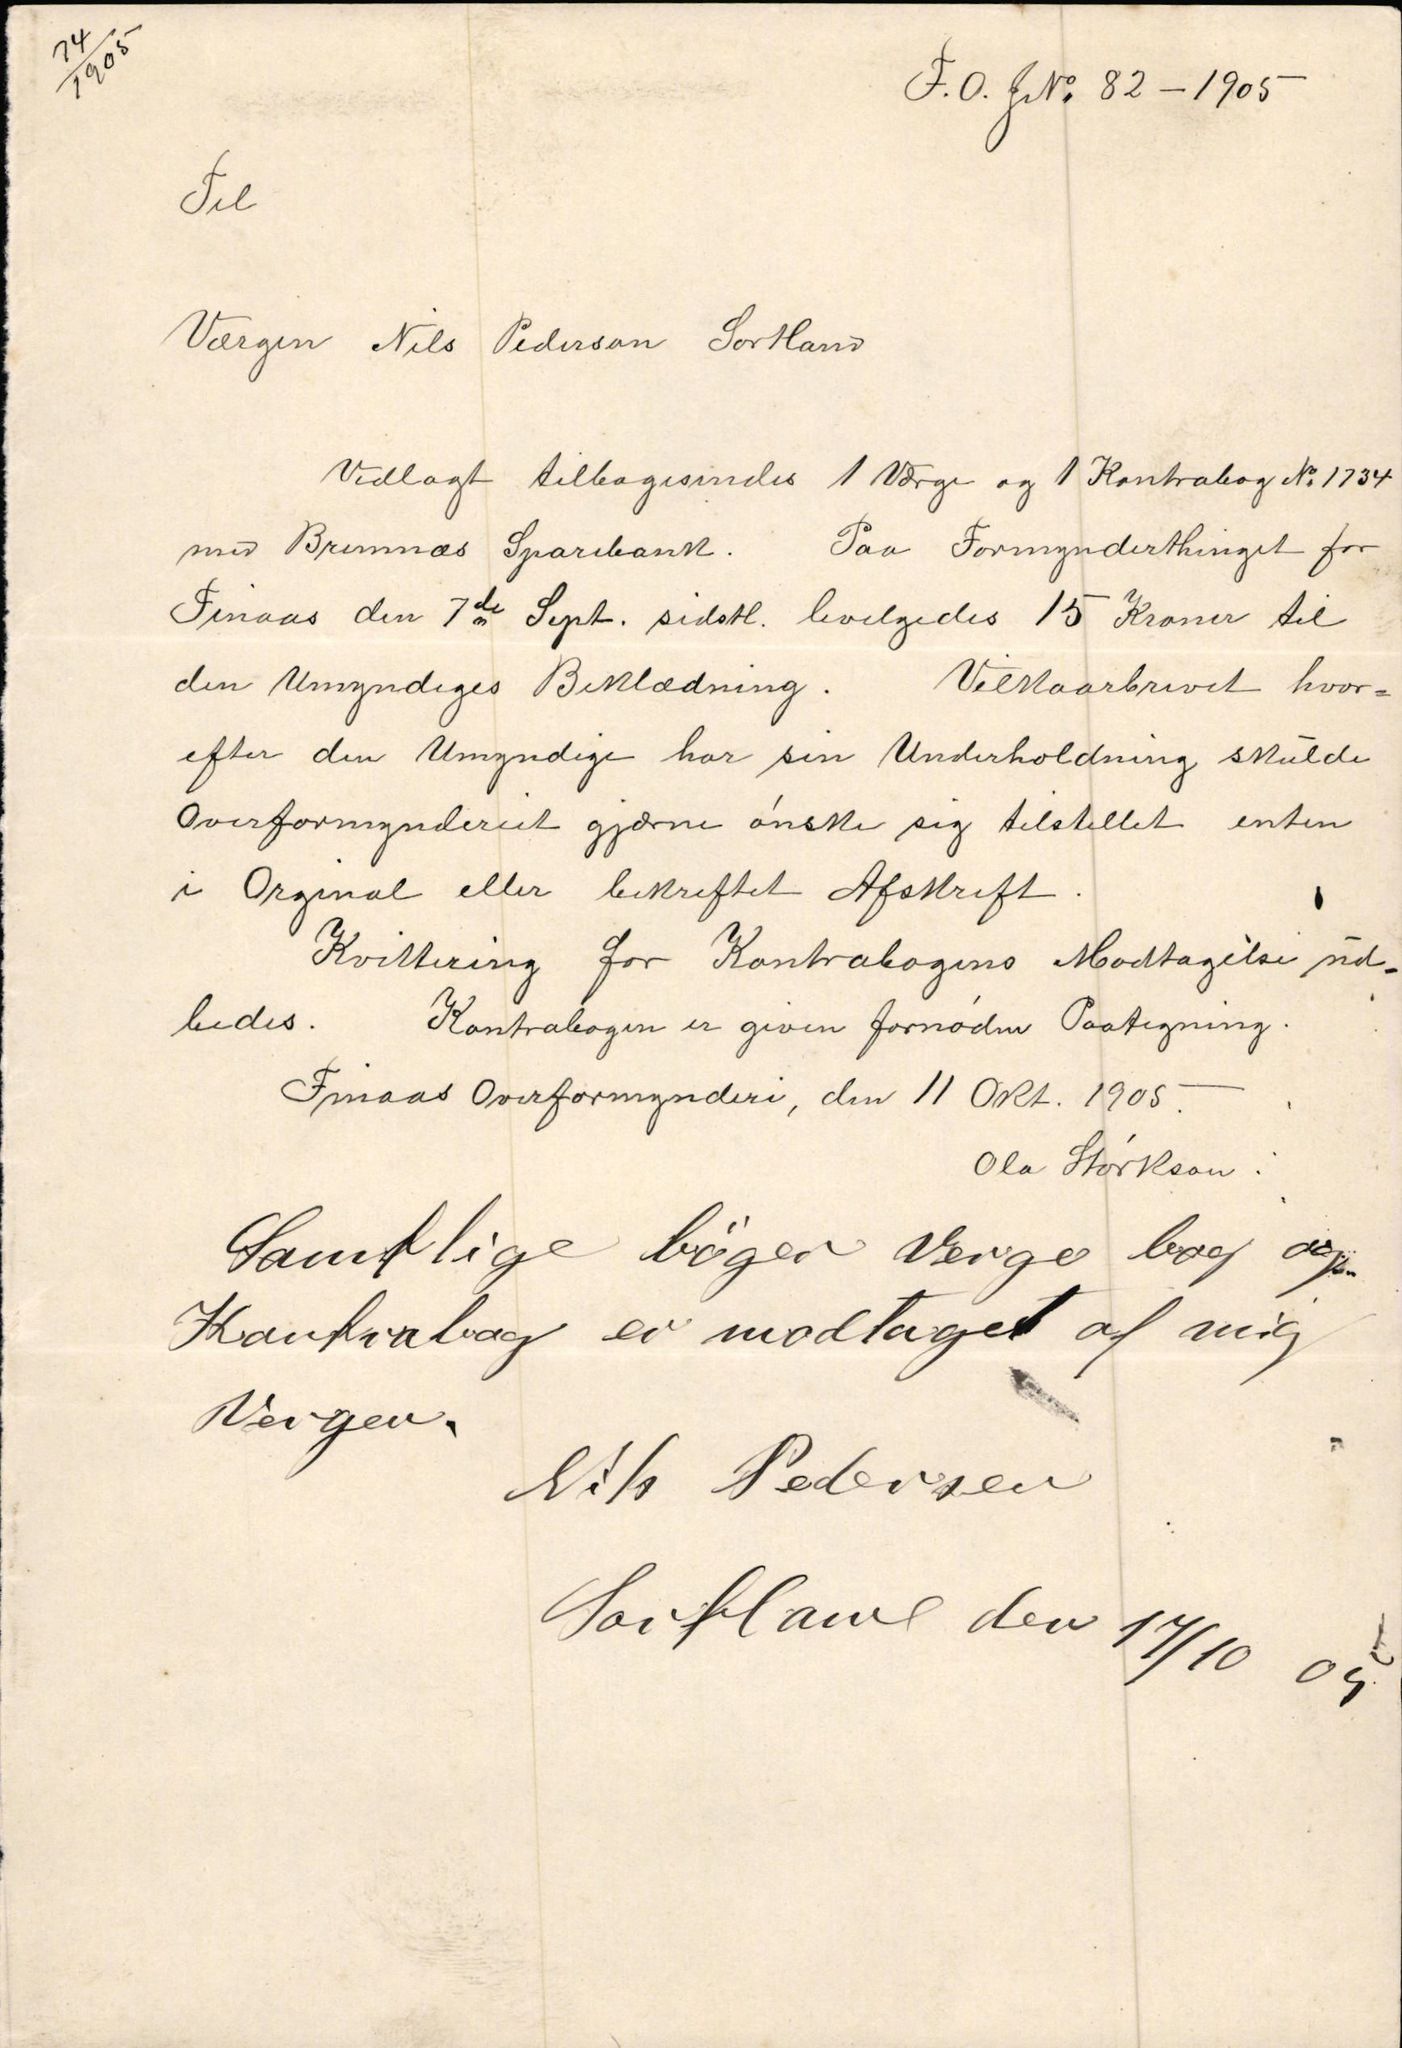 74/1905
F.O. J No. 82 – 1905
Til
Værgen Nils Pederson Sortland
Vedlagt tilbagesendes 1 Værge og 1 Kontrabog No. 1734
med Bremnæs Sparebank. Paa Formynderthinget for
Finaas den 7de Sept. sidstl. bevilgedes 15 Kroner til
den Umyndiges Beklædning. Vilkaarbrevet hvor=
efter den Umyndige har sin Underholdning skulde
Overformynderiet gjærne ønske sig tilstillet enten
i Orginal eller bekreftet Afskrift.
Kvittering for Kontrabogens Modtagelse ud-
bedes. Kontrabogen er given fornøden Paategning.
Finaas Overformynderi, den 11 Okt. 1905.
Ola Størkson
Samtlige böger Verge bog og
Kontrabog er modtaget af mig
Vergen.
Nils Pedersen
Sortland den 17/10 05